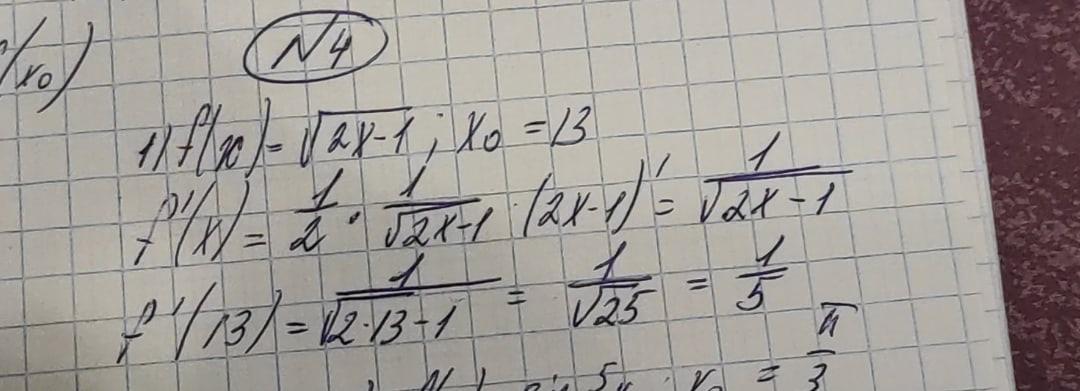 /x₀)
N4
1) f(x) = √(2x-1) ; x₀ = 13
f'(x) = 1/2 · 1/√(2x-1) · (2x-1)' = 1/√(2x-1)
f'(13) = 1/√(2·13-1) = 1/√25 = 1/5
5x ; x₀ = π/3